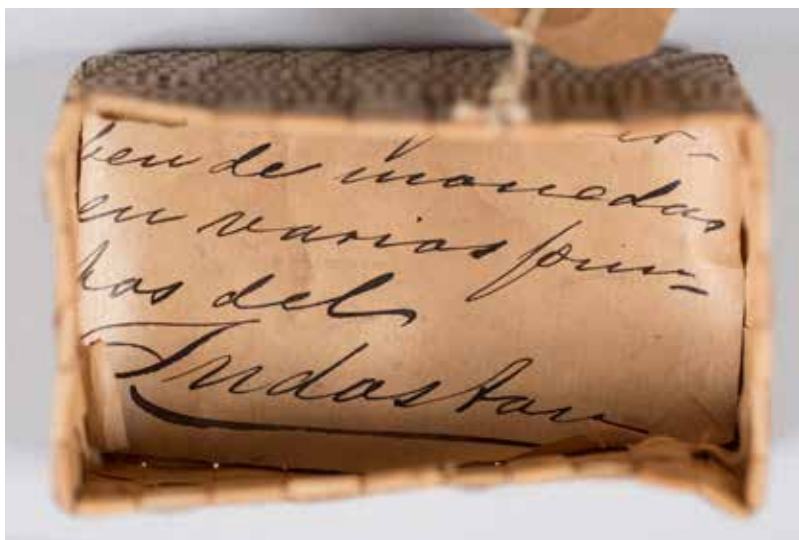 ben de monedas
en varios pun-
tos del
Indostan